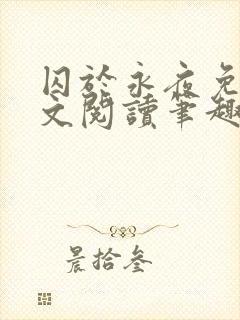 囚於永夜免
文閱讀筆趣
晨拾叁